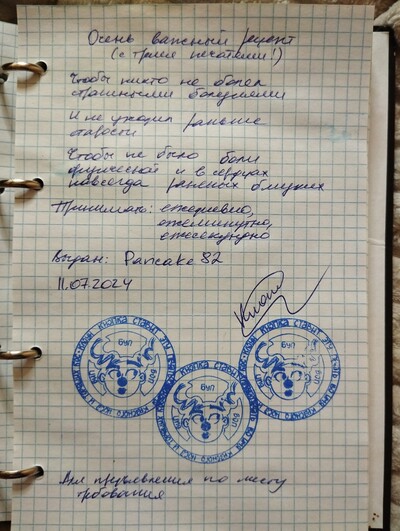 Очень важный рецепт
(с тремя печатями!)
Чтобы никто не болел
страшными болезнями
И не уходил раньше
старости
Чтобы не было боли
физической и в сердцах
навсегда раненых близких
Принимать: ежедневно,
ежеминутно,
ежесекундно
Выдан: Pancake 82
11.07.2024
КНОПКА СТАВИТ ЭТУ
БУП
КНОПКА СТАВИТ ЭТУ
БУП
КНОПКА СТАВИТ ЭТУ
БУП
Для предъявления по месту
требования